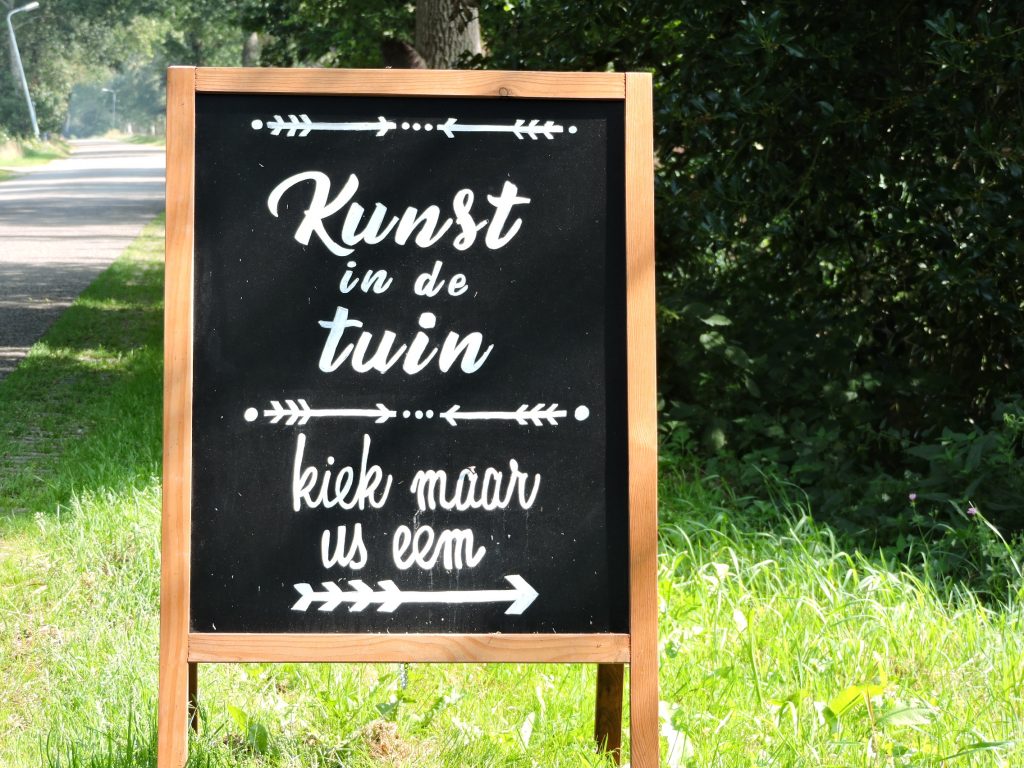 Kunst
in de
tuin
kiek maar
us eem